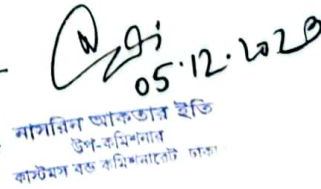 05.12.2023
নাসরিন আকতার ইতি
উপ-কমিশনার
কাস্টমস বন্ড কমিশনারেট ঢাকা